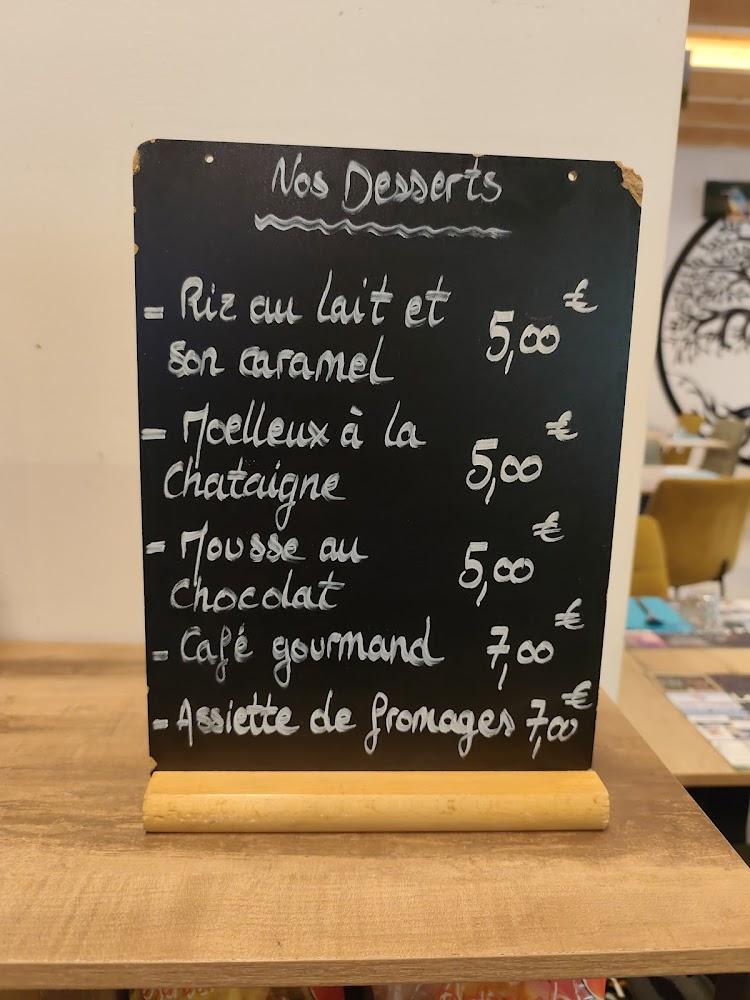 Nos Desserts
- Riz au lait et
son caramel 5,00€
- Moelleux à la
Chataigne 5,00€
- Mousse au
chocolat 5,00€
- Café gourmand 7,00€
- Assiette de fromages 7,00€